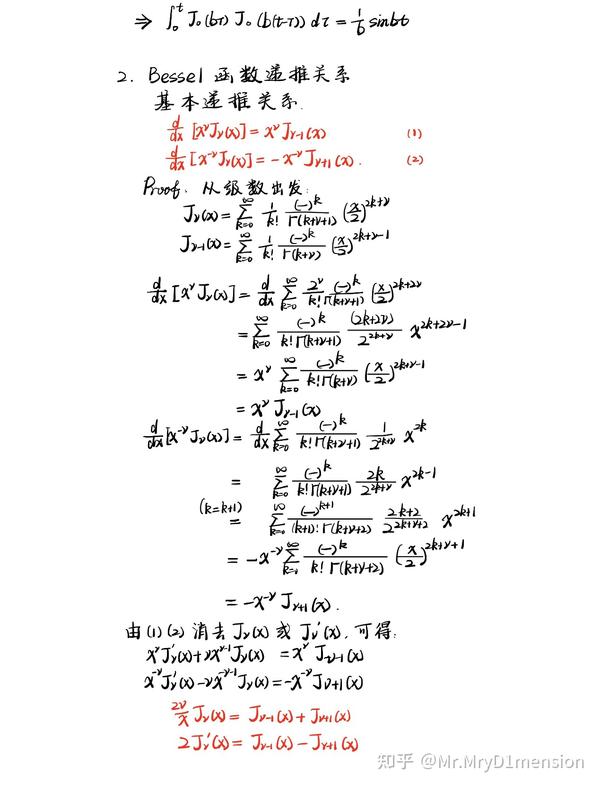 ⇒ ∫₀ᵗ J₀(bτ) J₀(b(t-τ)) dτ = 1/b sinbt
2. Bessel 函数递推关系
基本递推关系.
d/dx [x^ν J_ν(x)] = x^ν J_{ν-1}(x) (1)
d/dx [x^{-ν} J_ν(x)] = -x^{-ν} J_{ν+1}(x). (2)
Proof. 从级数出发:
J_ν(x) = ∑_{k=0}^∞ 1/k! (-)^k/Γ(k+ν+1) (x/2)^{2k+ν}
J_{ν-1}(x) = ∑_{k=0}^∞ 1/k! (-)^k/Γ(k+ν) (x/2)^{2k+ν-1}
d/dx [x^ν J_ν(x)] = d/dx ∑_{k=0}^∞ 2^ν/k! (-)^k/Γ(k+ν+1) (x/2)^{2k+2ν}
= ∑_{k=0}^∞ (-)^k/k!Γ(k+ν+1) (2k+2ν)/2^{2k+ν} x^{2k+2ν-1}
= x^ν ∑_{k=0}^∞ (-)^k/k!Γ(k+ν) (x/2)^{2k+ν-1}
= x^ν J_{ν-1}(x)
d/dx [x^{-ν} J_ν(x)] = d/dx ∑_{k=0}^∞ (-)^k/k!Γ(k+ν+1) 1/2^{2k+ν} x^{2k}
= ∑_{k=0}^∞ (-)^k/k!Γ(k+ν+1) 2k/2^{2k+ν} x^{2k-1}
(k=k+1) = ∑_{k=0}^∞ (-)^{k+1}/(k+1)!Γ(k+ν+2) 2k+2/2^{2k+ν+2} x^{2k+1}
= -x^{-ν} ∑_{k=0}^∞ (-)^k/k!Γ(k+ν+2) (x/2)^{2k+ν+1}
= -x^{-ν} J_{ν+1}(x).
由(1)(2) 消去 J_ν(x) 或 J_ν'(x), 可得:
x^ν J_ν'(x) + νx^{ν-1} J_ν(x) = x^ν J_{ν-1}(x)
x^{-ν} J_ν'(x) - νx^{-ν-1} J_ν(x) = -x^{-ν} J_{ν+1}(x)
2ν/x J_ν(x) = J_{ν-1}(x) + J_{ν+1}(x)
2J_ν'(x) = J_{ν-1}(x) - J_{ν+1}(x)
知乎 @Mr.MryD1mension